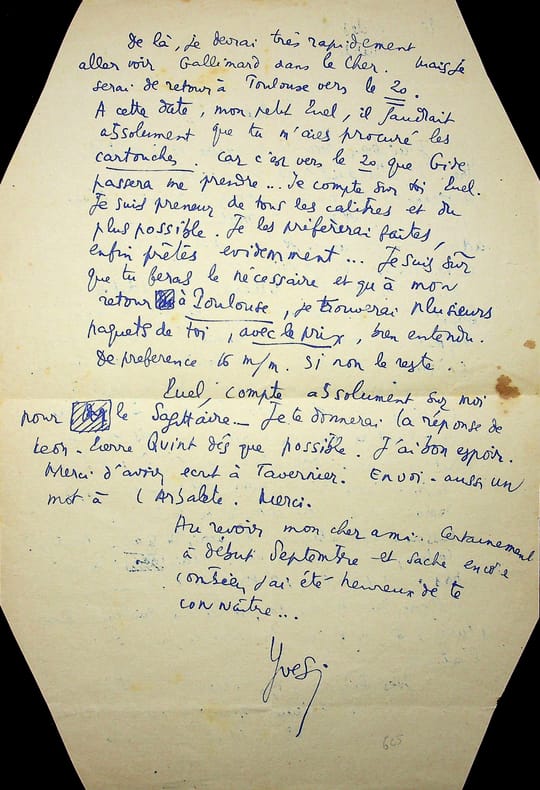 De là, je devrai très rapidement
aller voir Gallimard dans le Cher. Mais je
serai de retour à Toulouse vers le 20.
A cette date, mon petit Luel, il faudrait
absolument que tu m'aies procuré les
cartouches. Car c'est vers le 20 que Gide
passera me prendre... Je compte sur toi Luel.
Je suis preneur de tous les calibres et du
plus possible. Je les préfèrerai faites,
enfin prêtes evidemment... Je suis sûr
que tu feras le nécessaire et qu'à mon
retour à Toulouse, je trouverai plusieurs
paquets de toi, avec le prix, bien entendu.
De preference 16 m/m. Si non le reste.
Luel, compte absolument sur moi
pour le Sagittaire. Je te donnerai la réponse de
Léon-Pierre Quint dés que possible. J'ai bon espoir.
Merci d'avoir ecrit à Tavernier. Envoi-aussi un
mot à l'Arbalète. Merci.
Au revoir mon cher ami. Certainement
à début Septembre et sache encore
combien j'ai été heureux de te
connaître...
Yves
625